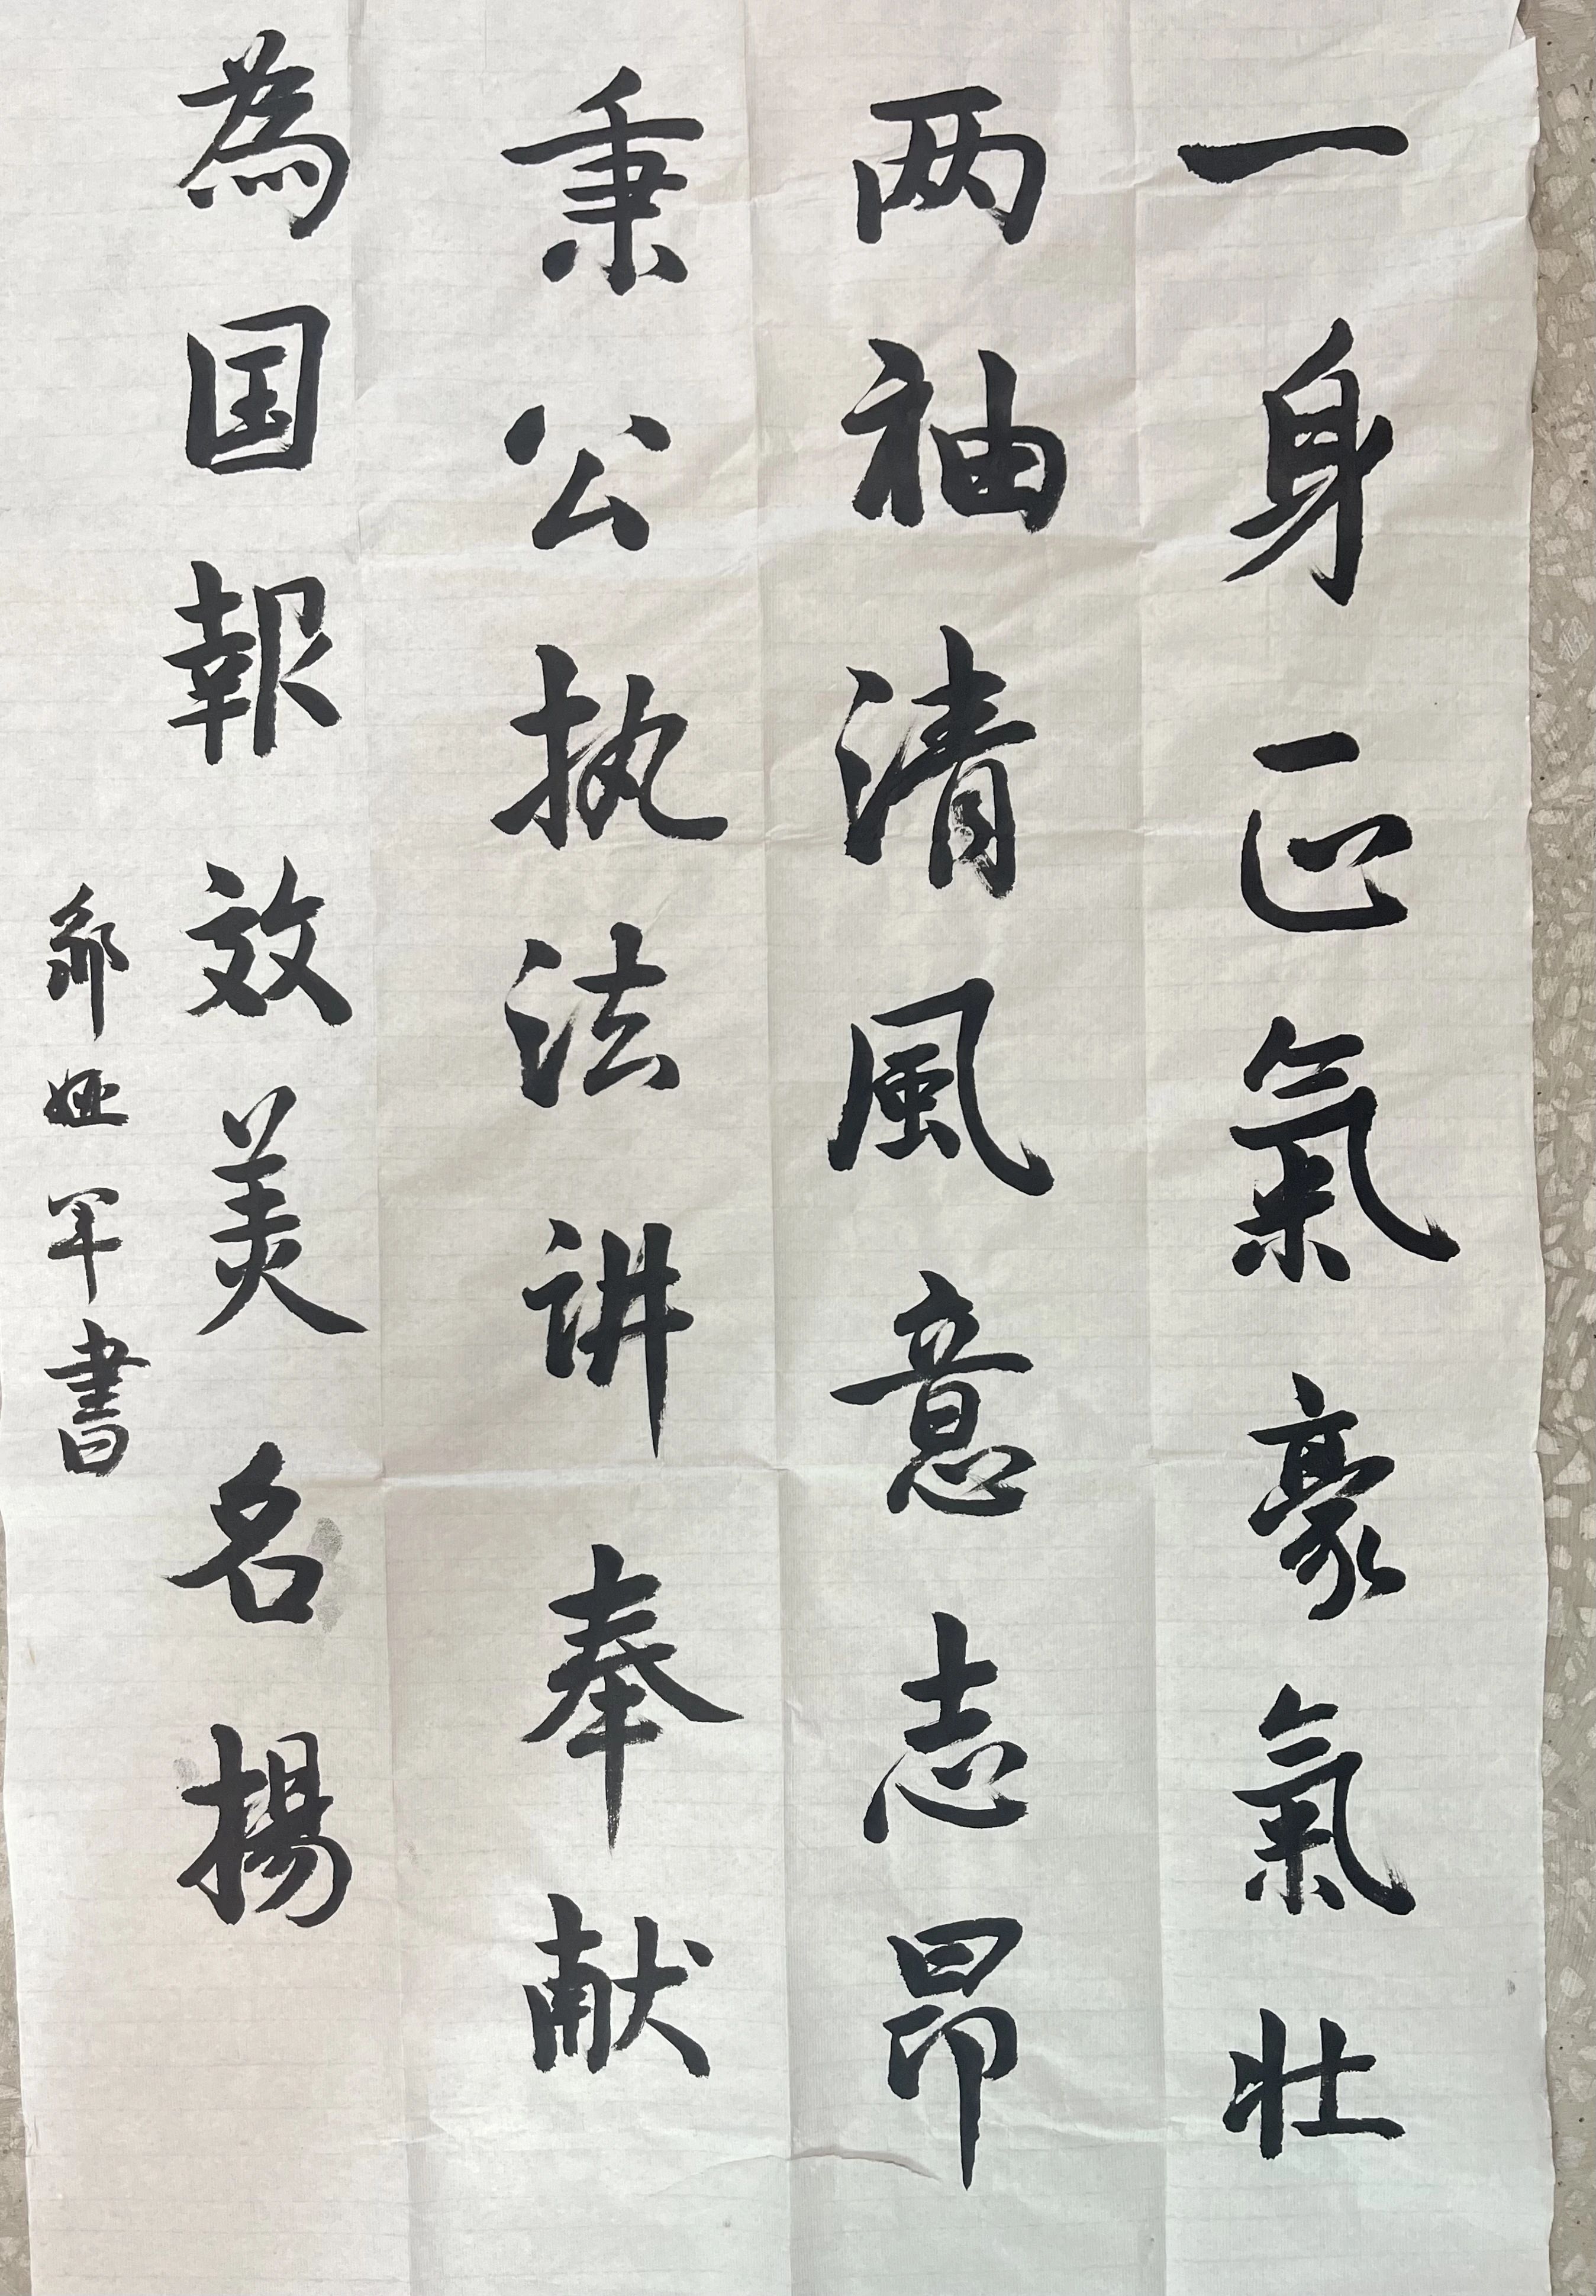 一身正氣豪氣壮
两袖清風意志昂
秉公执法讲奉献
為国報效美名揚
军書